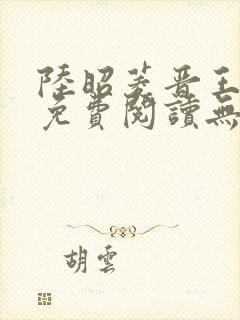 陸昭菱晋王
免費閱讀無
胡雲